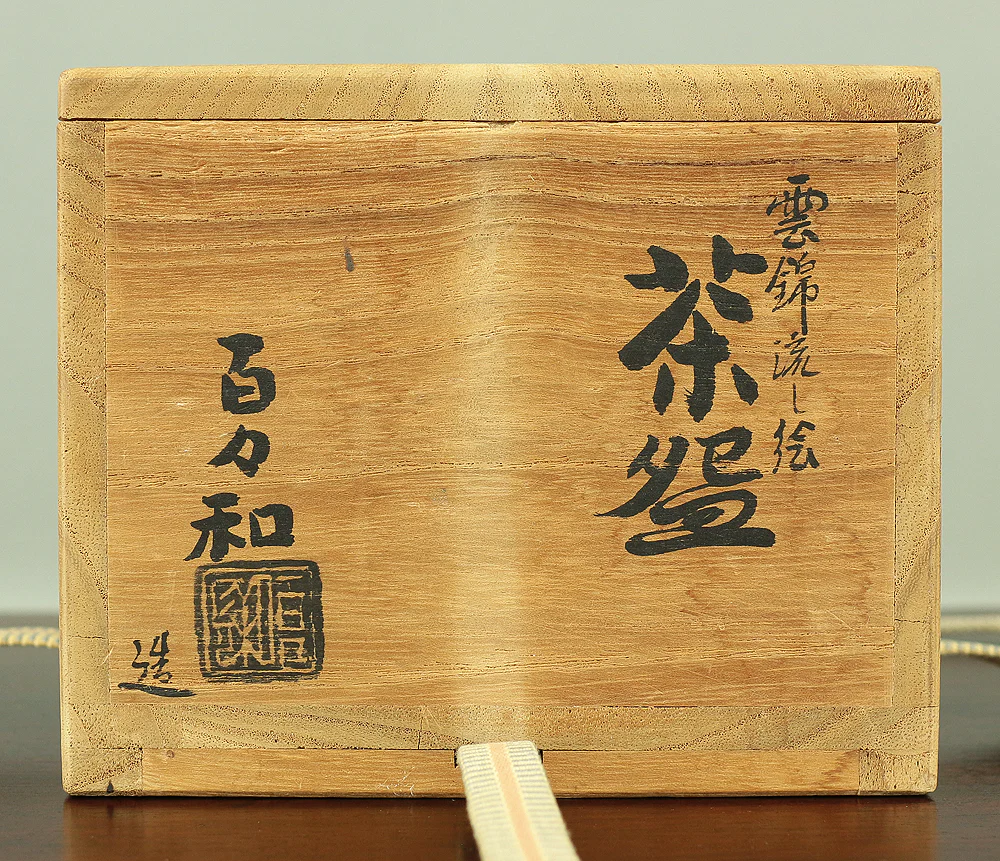 雲錦流し絵
茶盌
百々和
造